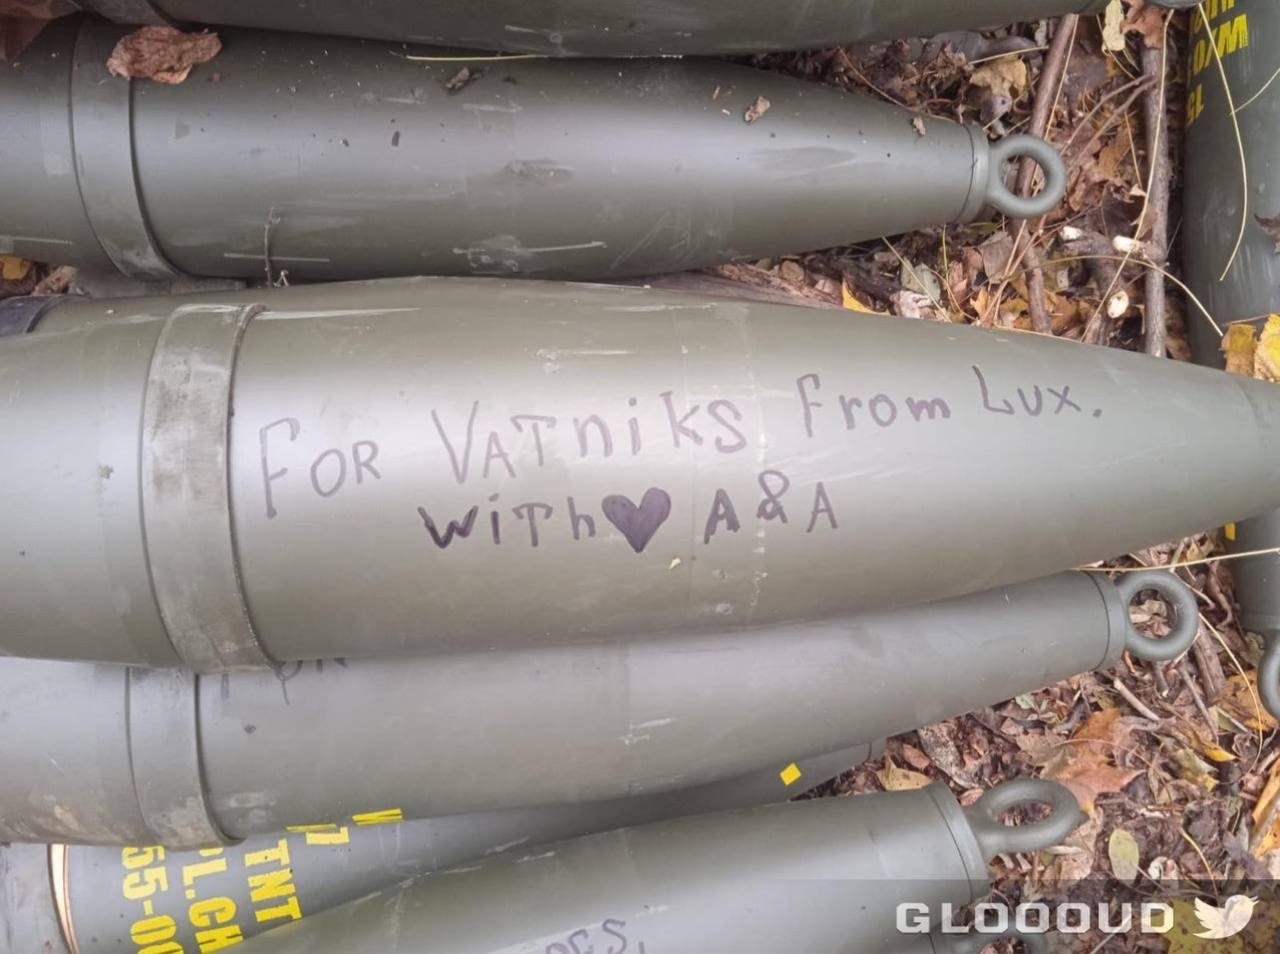 FOR VATniKS From Lux.
WiTh ♥ A & A
TNT
GLOOOUD